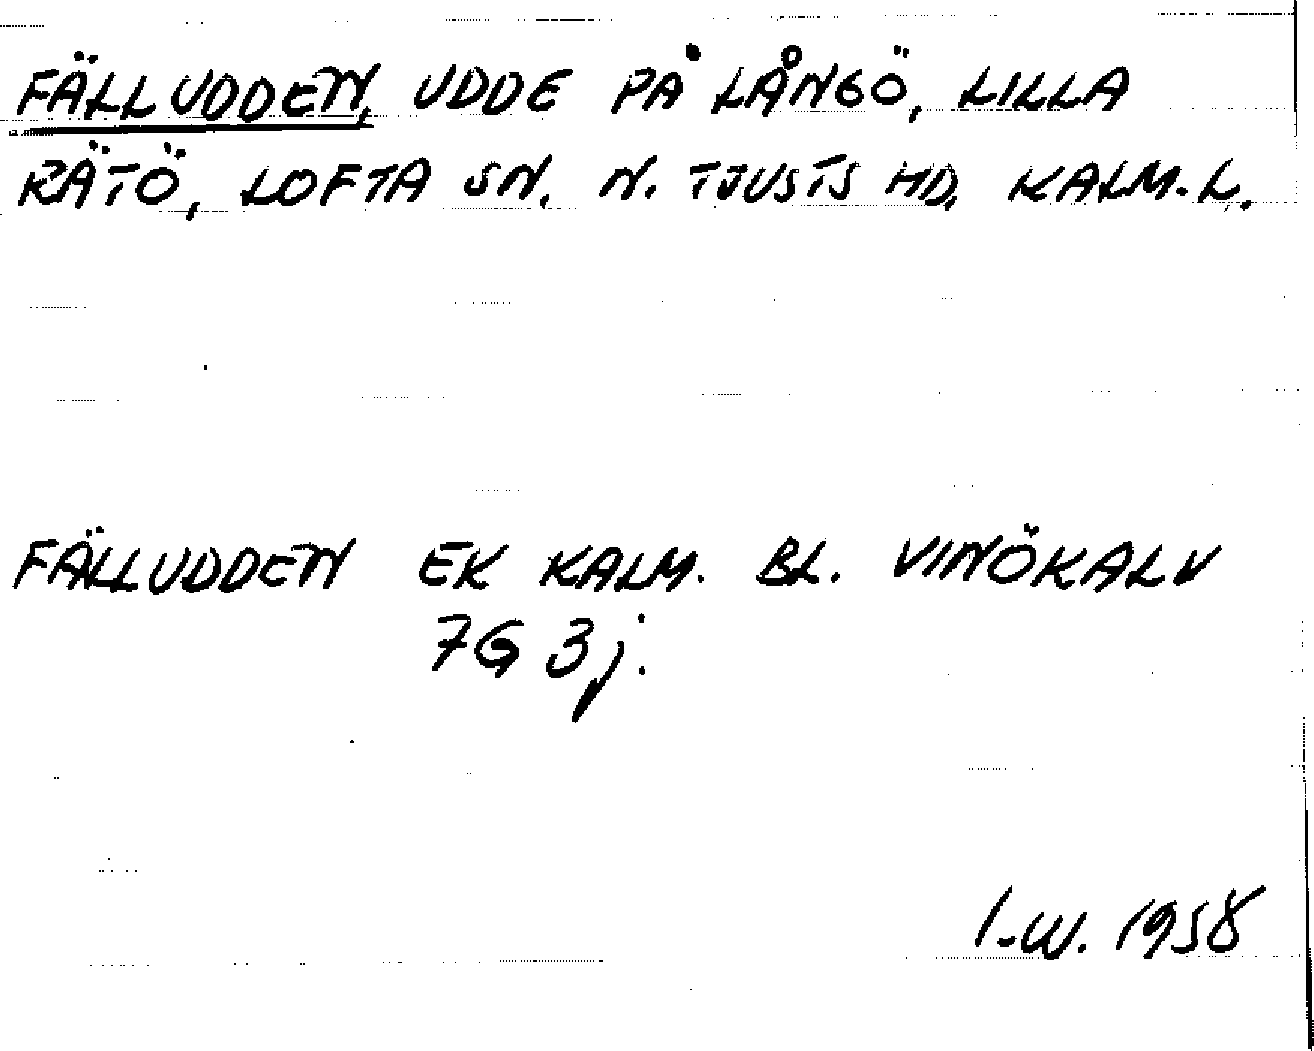 FÄLLUDDEN, UDDE PÅ LÅNGÖ, LILLA
RÄTÖ, LOFTA SN. N. TJUSTS HD, KALM. L.
FÄLLUDDEN EK KALM. BL. VINÖKALV
7G 3j.
I.W. 1958